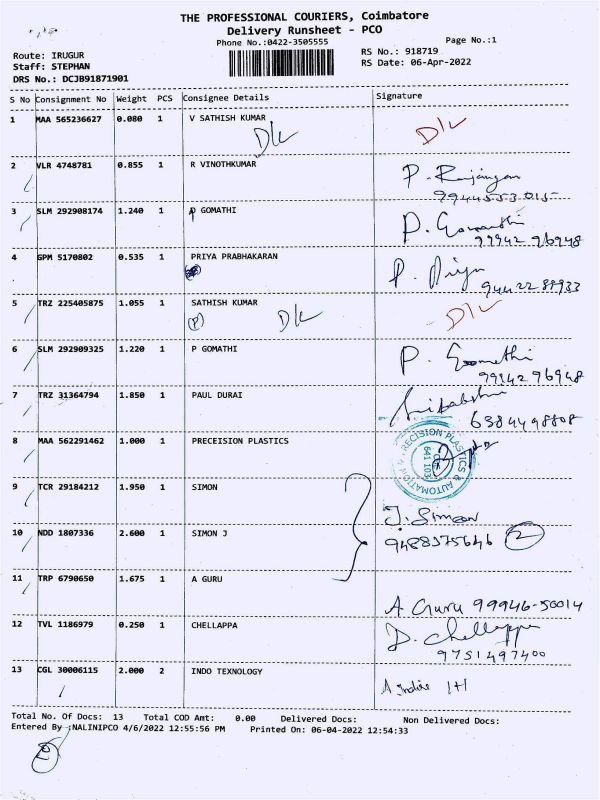 THE PROFESSIONAL COURIERS, Coimbatore
Delivery Runsheet - PCO
Phone No.:0422-3505555
Page No.:1
Route: IRUGUR
RS No.: 918719
Staff: STEPHAN
RS Date: 06-Apr-2022
DRS No.: DCJB91871901
S No Consignment No Weight PCS Consignee Details Signature
1 MAA 565236627 0.080 1 V SATHISH KUMAR
D/L D/L
2 VLR 4748781 0.855 1 R VINOTHKUMAR
3 SLM 292908174 1.240 1 P GOMATHI
P. Gomathi
99942 96948
4 GPM 5170802 0.535 1 PRIYA PRABHAKARAN
P. Priya
94422 89933
5 TRZ 225405875 1.055 1 SATHISH KUMAR
(P) D/L D/L
6 SLM 292909325 1.220 1 P GOMATHI
P. Gomathi
99942 96948
7 TRZ 31364794 1.850 1 PAUL DURAI
6384498808
8 MAA 562291462 1.000 1 PRECEISION PLASTICS
PRECISION PLASTICS & AUTOMATION
641 103
9 TCR 29184212 1.950 1 SIMON
J. Simon
10 NDD 1807336 2.600 1 SIMON J
9488375646 2
11 TRP 6790650 1.675 1 A GURU
A Guru 99946-50014
12 TVL 1186979 0.250 1 CHELLAPPA
D. Chellappa
9751497400
13 CGL 30006115 2.000 2 INDO TEXNOLOGY
Total No. Of Docs: 13 Total COD Amt: 0.00 Delivered Docs: Non Delivered Docs:
Entered By :NALINIPCO 4/6/2022 12:55:56 PM Printed On: 06-04-2022 12:54:33